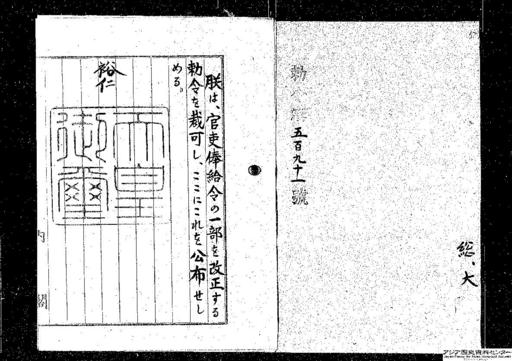 勅令第五百九十一號
総、大
朕は、官吏俸給令の一部を改正する
勅令を裁可し、ここにこれを公布せし
める。
裕仁
天皇
御璽
内閣
アジア歴史資料センター